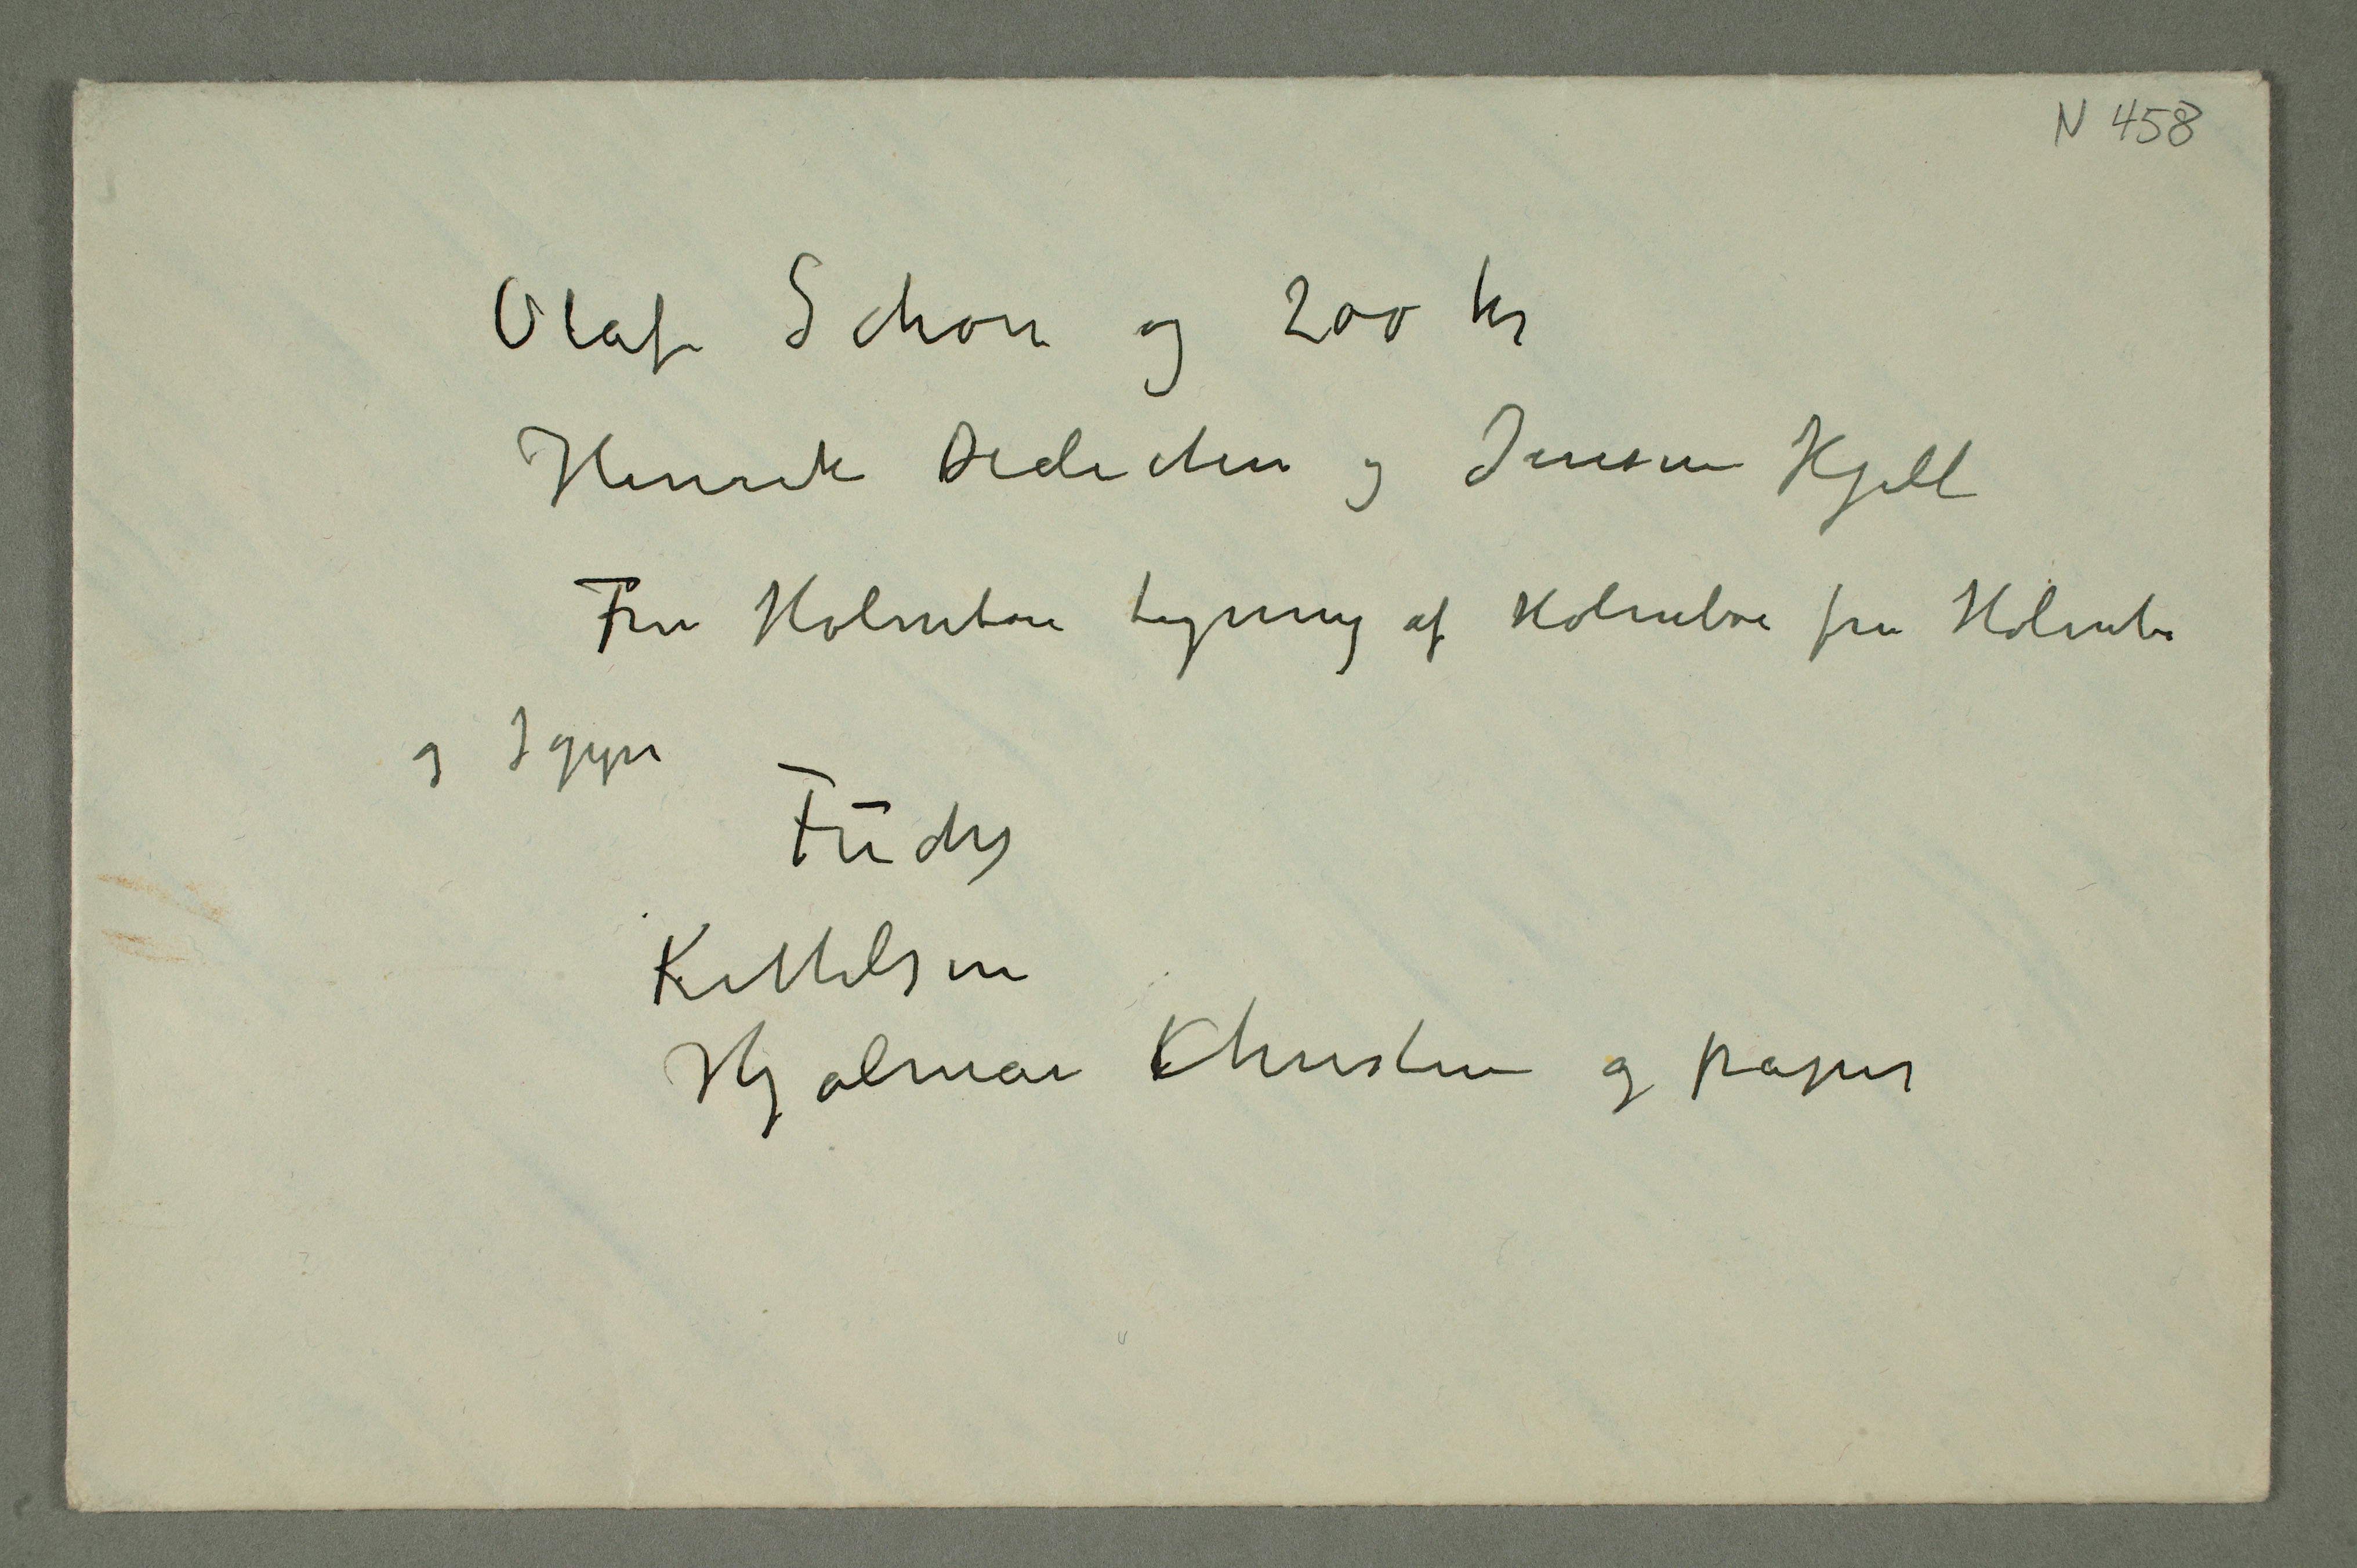 N 458
Olaf Schou og 200 kr
Henrik Dedichen og Jensen Hjell
Fru Holmboe tegning af Holmboe fru Holmbo
og
Fūchs
Kittelsen
Hjalmar Christensen og papir